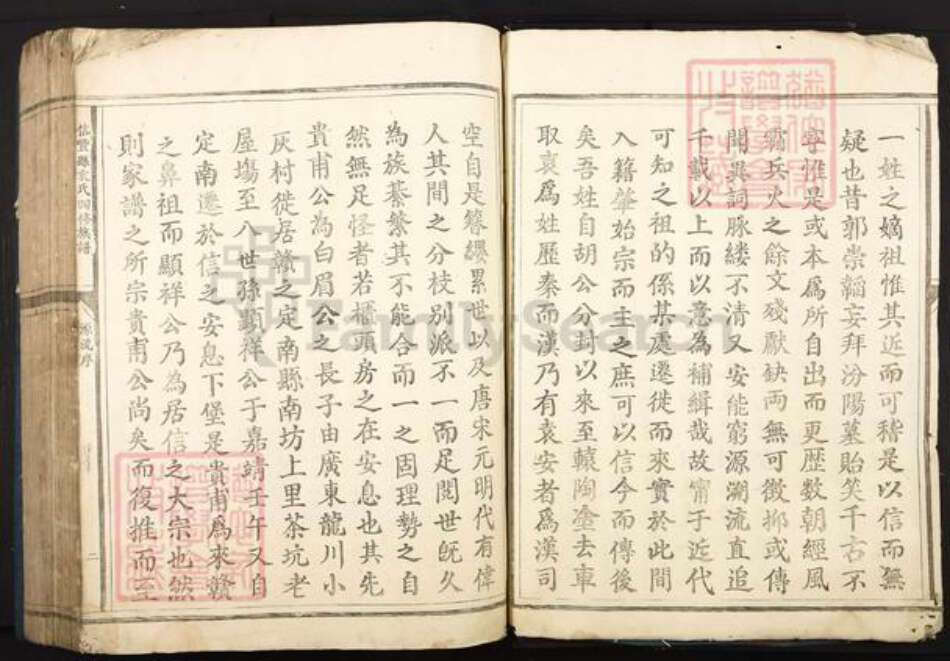 一姓之嫡祖惟其近而可稽是以信而無
疑也昔郭崇韜妄拜汾陽墓貽笑千古不
寧惟是或本爲所自出而更歷数朝經風
霜兵火之餘文殘獻缺両無可徵抑或傳
聞異詞脉縷不清又安能窮源溯流直追
千載以上而以意為補緝哉故甯于近代
可知之祖的係某處遷徙而來實於此間
入籍肇始宗而主之庶可以信今而傳後
矣吾姓自胡公分封以來至轅陶塗去車
取袁爲姓歷秦而漢乃有袁安者爲漢司
空自是簪纓累世以及唐宋元明代有偉
人其間之分枝別派不一而足閱世旣久
為族蓁繁其不能合而一之固理勢之自
然無足怪者若櫃頭房之在安息也其先
貴甫公為白眉公之長子由廣東龍川小
灰村徙居贛之定南縣南坊上里茶坑老
屋場至八世孫顕祥公于嘉靖壬午又自
定南遷於信之安息下堡是貴甫爲來贛
之鼻祖而顯祥公乃為居信之大宗也然
則家譜之所宗貴甫公尚矣而復推而至
信豐縣袁氏四修族譜
源流序
二
FamilySearch